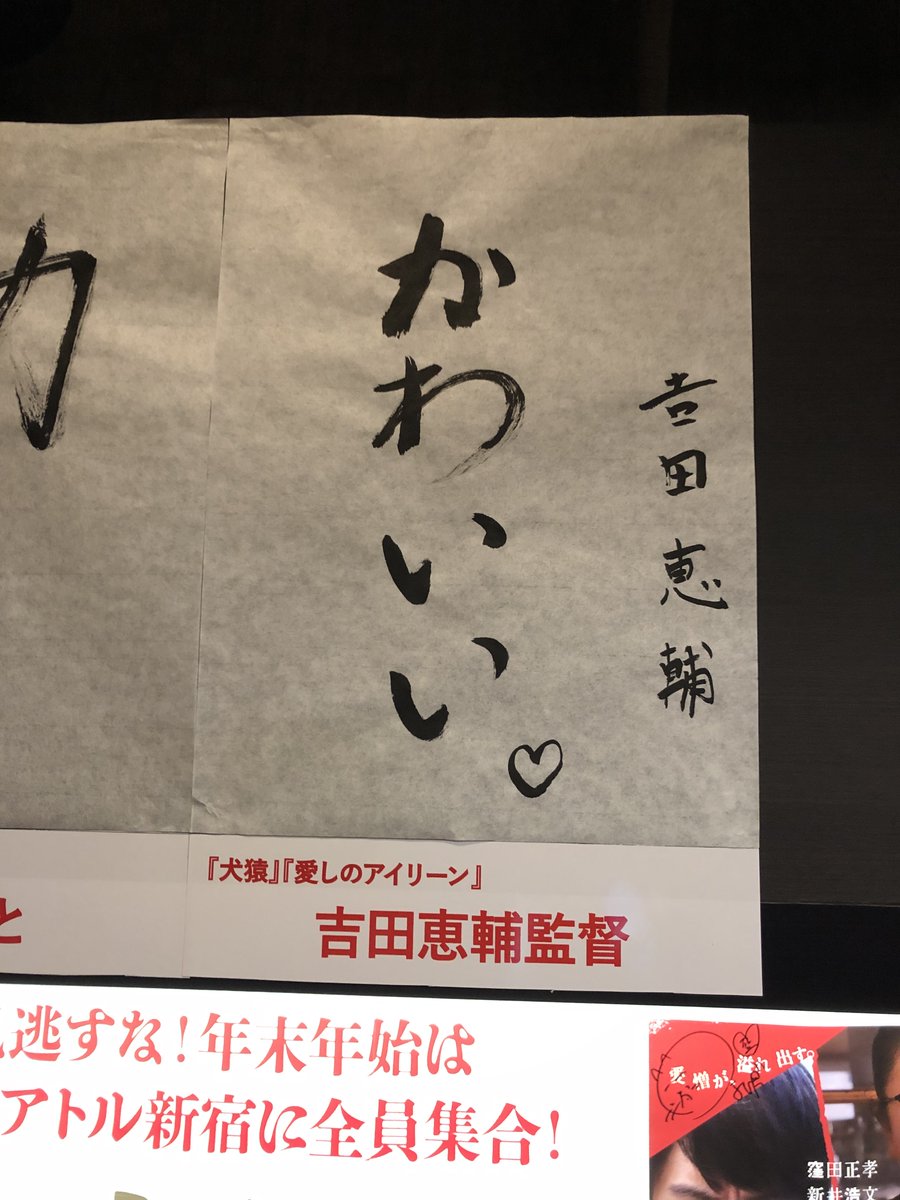 かわいい♡
𠮷田恵輔
『犬猿』『愛しのアイリーン』
吉田恵輔監督
と
逃すな!年末年始は
アトル新宿に全員集合!
愛憎が、溢れ出す。
窪田正孝
新井浩文